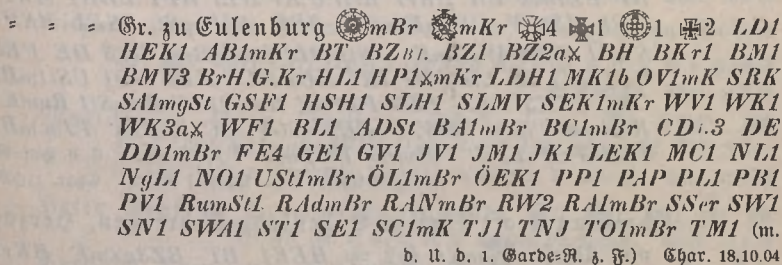 = = = Gr. zu Eulenburg mBr mKr 4 1 1 2 LD1
HEK1 AB1mKr BT BZBr. BZ1 BZ2a⚔ BH BKr1 BM1
BMV3 BrH.G.Kr HL1 HP1⚔mKr LDH1 MK1b OV1mK SRK
SA1mgSt GSF1 HSH1 SLH1 SLMV SEK1mKr WV1 WK1
WK3a⚔ WF1 BL1 ADSt BA1mBr BC1mBr DE
DD1mBr FE4 GE1 GV1 JV1 JM1 JK1 LEK1 MC1 NL1
NgL1 NO1 USt1mBr ÖL1mBr ÖEK1 PP1 PAP PL1 PB1
PV1 RumSt1 RAdmBr RANmBr RW2 RA1mBr SSer SW1
SN1 SWA1 ST1 SE1 SC1mK TJ1 TNJ TO1mBr TM1 (m.
d. U. d. 1. Garde=R. z. F.) Char. 18.10.04